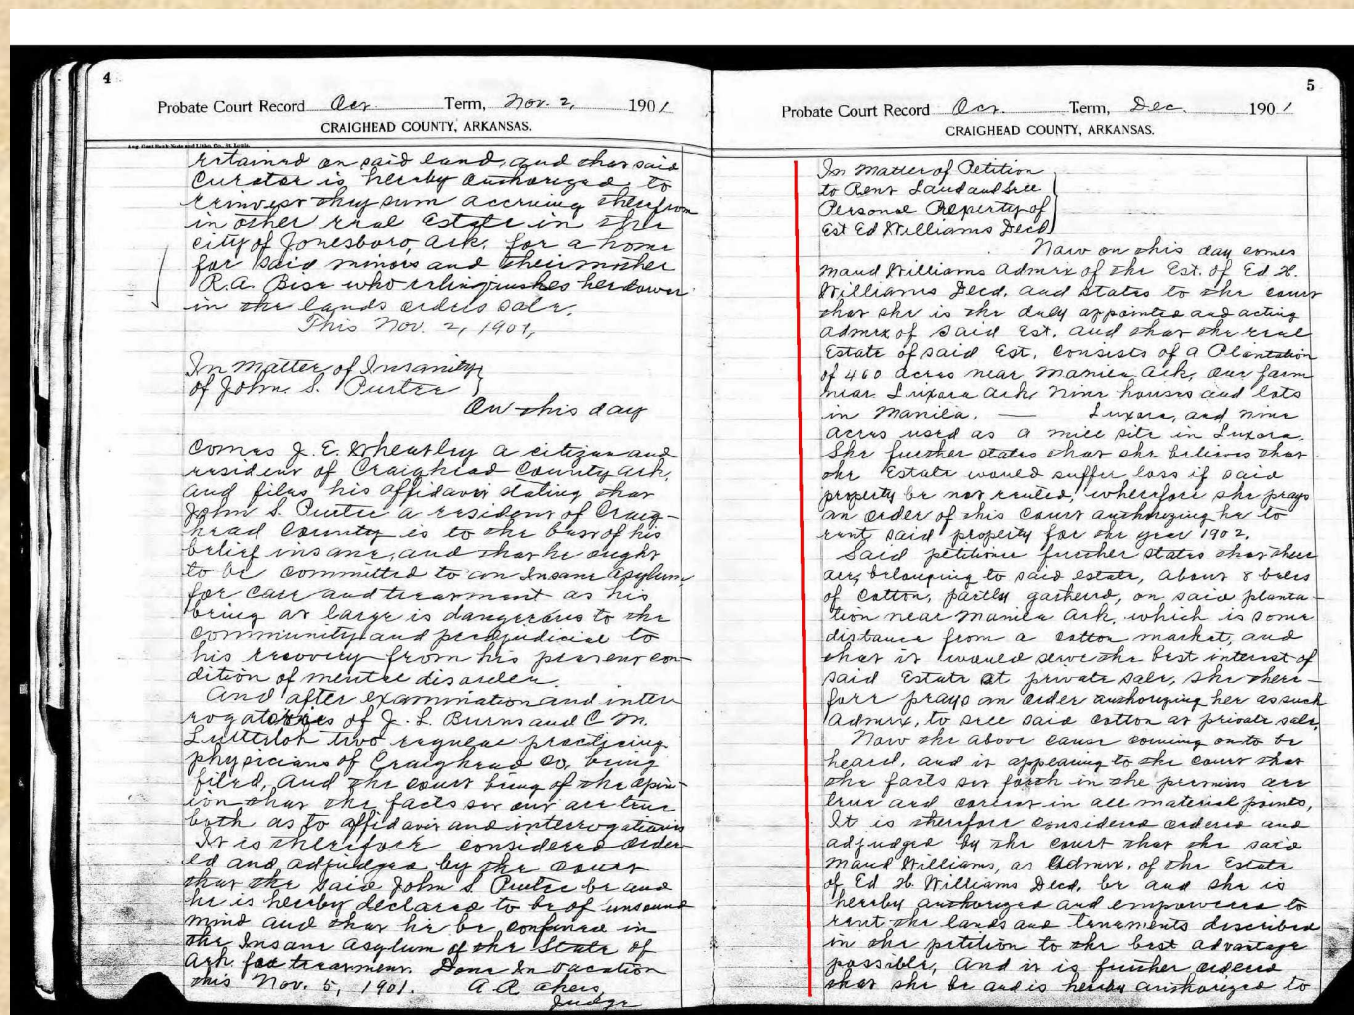 4
Probate Court Record Oct Term, Nov. 2, 1901
CRAIGHEAD COUNTY, ARKANSAS.
retained on said land, and that said
Curator is hereby authorized to
reinvest the sum accruing therefrom
in other real estate in the
city of Jonesboro, Ark. for a home
for said minors and their mother
R.A. Bise who relinquishes her dower
in the lands orders sale.
This Nov. 2, 1901,
In Matter of Insanity
of John. S.
On this day
comes J. E. Wheatley a citizen and
resident of Craighead County Ark,
and files his affidavit stating that
John S. a resident of Craig-
head County is to the best of his
belief insane, and that he ought
to be committed to an Insane asylum,
for care and treatment as his
being at large is dangerous to the
community and prejudicial to
his recovery from his present con-
dition of mental disorder.
And after examination and inter
rogatories of J. L. Burns and C. M.
two regular practicing
physicians of Craighead Co. being
filed, and the court being of the opin-
ion that the facts set out are true
both as to affidavit and interrogatories
It is therefore considered order-
ed and adjudged by the court
that the said John S. be and
he is hereby declared to be of unsound
mind and that he be confined in
the Insane asylum of the State of
Ark. for treatment. Done In vacation
this Nov. 5, 1901. A R
Judge
5
Probate Court Record Oct. Term, Dec. 1901
CRAIGHEAD COUNTY, ARKANSAS.
In Matter of Petition
to Rent Land and Sell
Personal Property of
Est Ed Williams Decd
Now on this day comes
Maud Williams Admrx of the Est. of Ed H.
Williams Decd. and states to the court
that she is the duly appointed and acting
admrx of said Est. and that the real
Estate of said Est. consists of a Plantation
of 460 acres near Manila Ark, one farm
near Luxora Ark, nine houses and lots
in Manila. — Luxora, and nine
acres used as a mill site in Luxora.
She further states that she believes that
the Estate would suffer loss if said
property be not rented, wherefore she prays
an order of this court authorizing her to
rent said property for the year 1902.
Said petitioner further states that there
are, belonging to said estate, about 8 bales
of cotton, partly gathered, on said planta-
tion near Manila Ark, which is some
distance from a cotton market, and
that it would serve the best interest of
said Estate at private sale, she there-
fore prays an order authorizing her as such
Admrx, to sell said cotton at private sale,
Now the above cause coming on to be
heard, and it appearing to the court that
the facts set forth in the premises are
true and correct in all material points,
It is therefore considered ordered and
adjudged by the court that the said
Maud Williams, as Admrx. of the Estate
of Ed H Williams Decd. be and she is
hereby authorized and empowered to
rent the lands and tenements described
in the petition to the best advantage
possible, And it is further ordered
that she be and is hereby authorized to